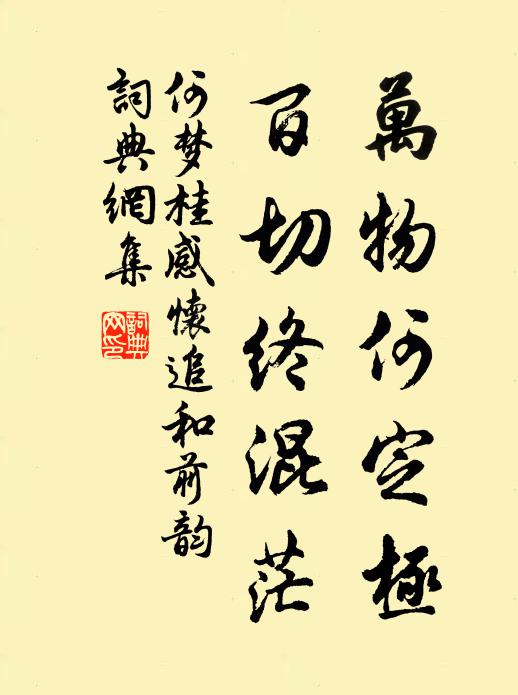 萬物何定極
百切終混茫
何梦桂感懷追和前韵
詞典網集
詞典網印